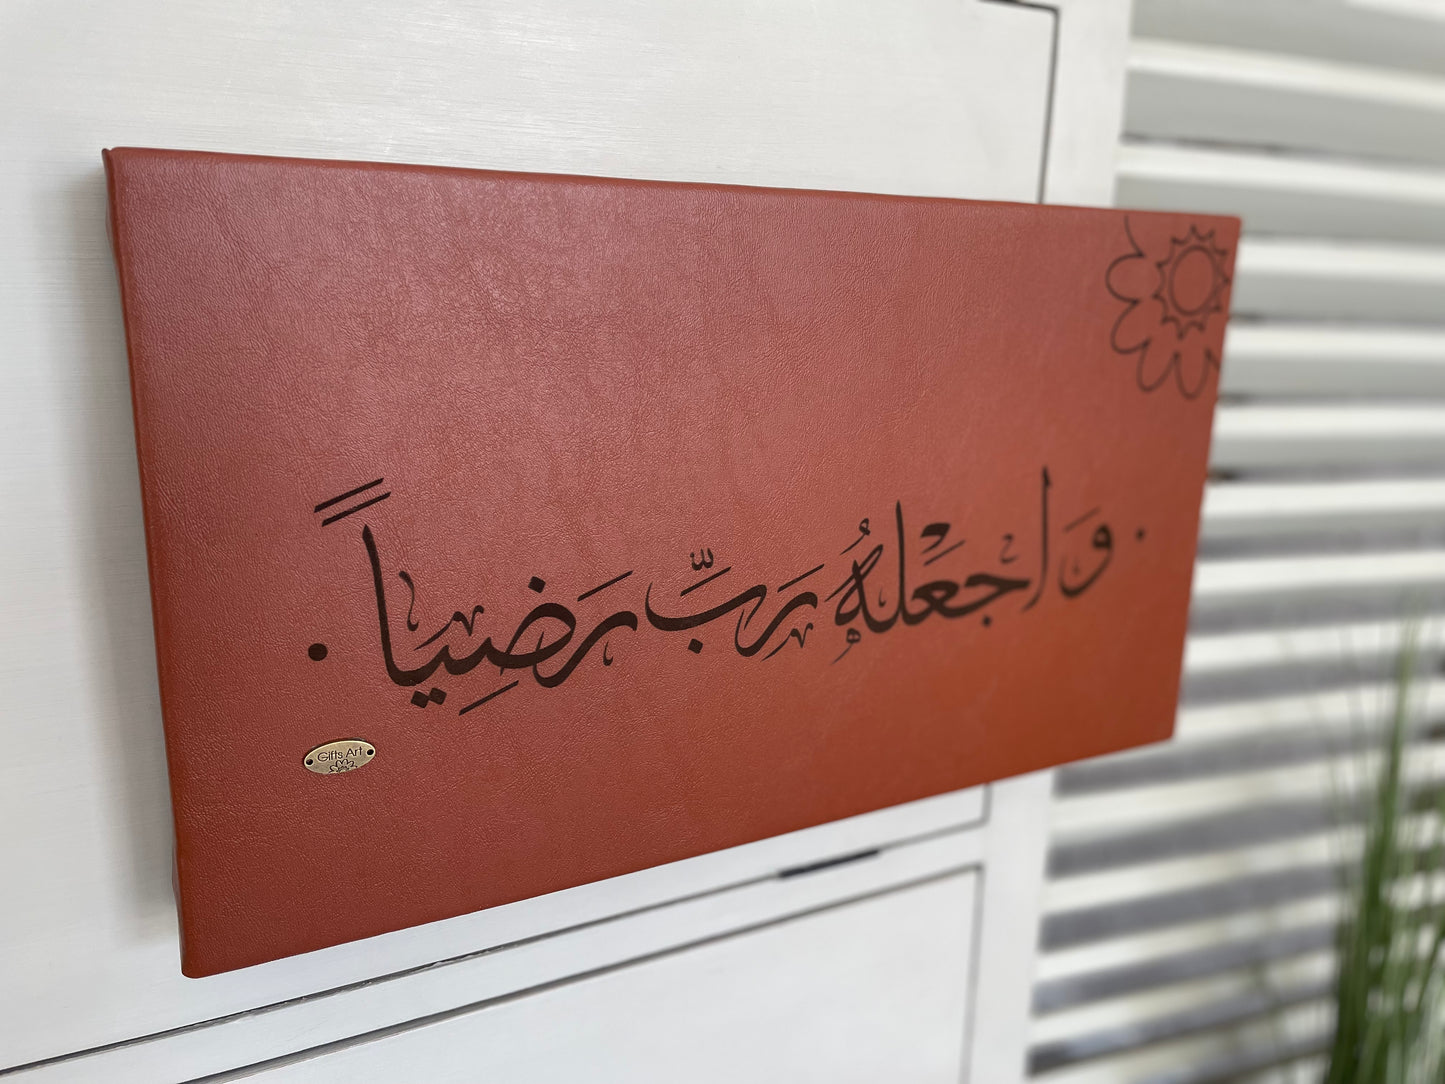 وَاجعَلهُ رَبِّ رَضِيَاً
Gifts Art